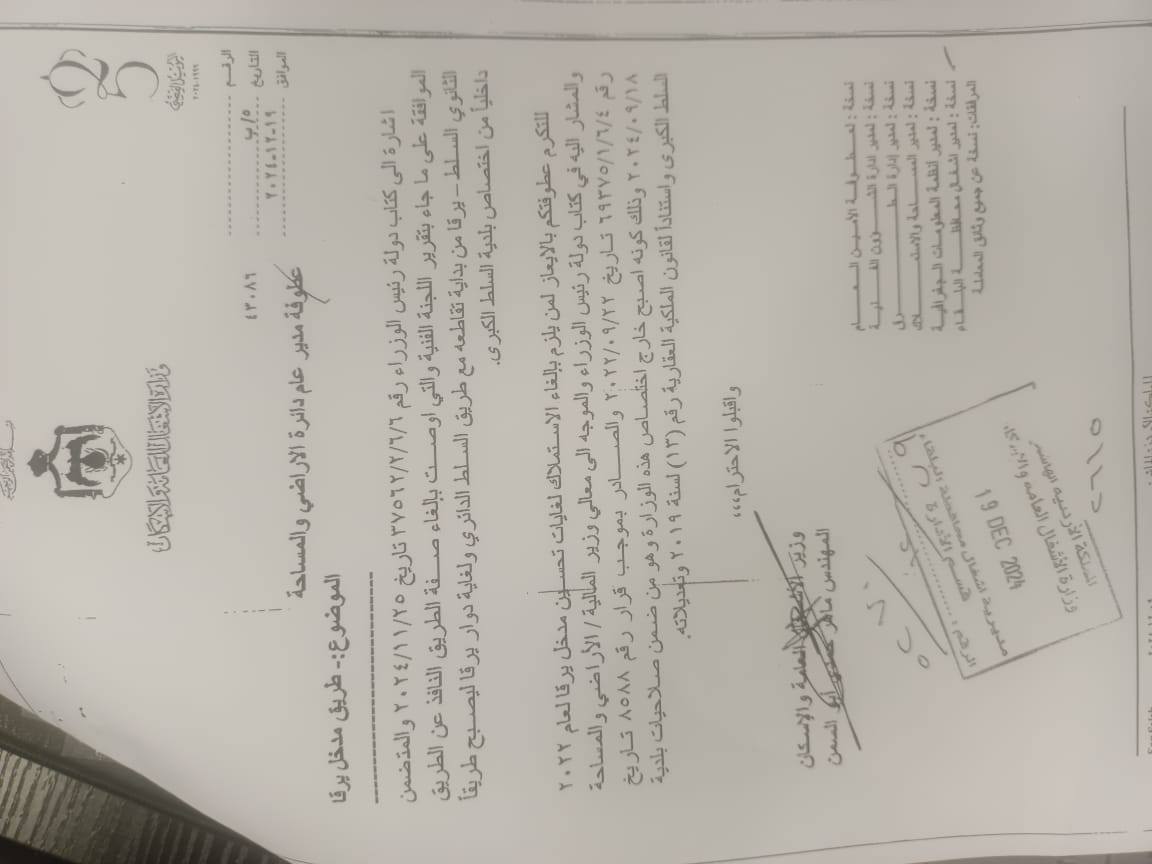 وزارة الأشغال العامة والإسكان
اليوبيل الفضي
١٩٩٩-٢٠٢٤
الرقم
التاريخ ٥/ب
الموافق ١٩-١٢-٢٠٢٤
٤٣٠٨٩
عطوفة مدير عام دائرة الاراضي والمساحة
الموضوع:- طريق مدخل يرقا
اشارة الى كتاب دولة رئيس الوزراء رقم ٣٧٥٦٢/٢/٦/٦ تاريخ ٢٠٢٤/١١/٢٥ والمتضمن
الموافقة على ما جاء بتقرير اللجنة الفنية والتي اوصت بإلغاء صفة الطريق النافذ عن الطريق
الثانوي السلط – يرقا من بداية تقاطعه مع طريق السلط الدائري ولغاية دوار يرقا ليصبح طريقاً
داخلياً من اختصاص بلدية السلط الكبرى.
للتكرم عطوفتكم بالايعاز لمن يلزم بإلغاء الاستملاك لغايات تحسين مدخل يرقا لعام ٢٠٢٢
والمشار اليه في كتاب دولة رئيس الوزراء والموجه الى معالي وزير المالية / الأراضي والمساحة
رقم ٦٩٣٧٥/١/٦/٤ تاريخ ٢٠٢٢/٠٩/٢٢ والصادر بموجب قرار رقم ٨٥٨٨ تاريخ
٢٠٢٤/٠٩/١٨ وذلك كونه اصبح خارج اختصاص هذه الوزارة وهو من ضمن صلاحيات بلدية
السلط الكبرى واستناداً لقانون الملكية العقارية رقم (١٣) لسنة ٢٠١٩ وتعديلاته.
واقبلوا الاحترام،،،
وزير الاشغال العامة والإسكان
المهندس ماهر حمدي ابو السمن
نسخة : لعطوفة الأمين العام
نسخة : لمدير ادارة الشؤون الفنية
نسخة : لمدير إدارة الطرق
نسخة : لمدير المساحة والاستملاك
نسخة : لمدير انظمة المعلومات الجغرافية
نسخة : لمدير اشغال محافظة البلقاء
المرفقات: نسخة عن جميع وثائق المعاملة
المملكة الأردنية الهاشمية
وزارة الأشغال العامة والاسكان
19 DEC 2024